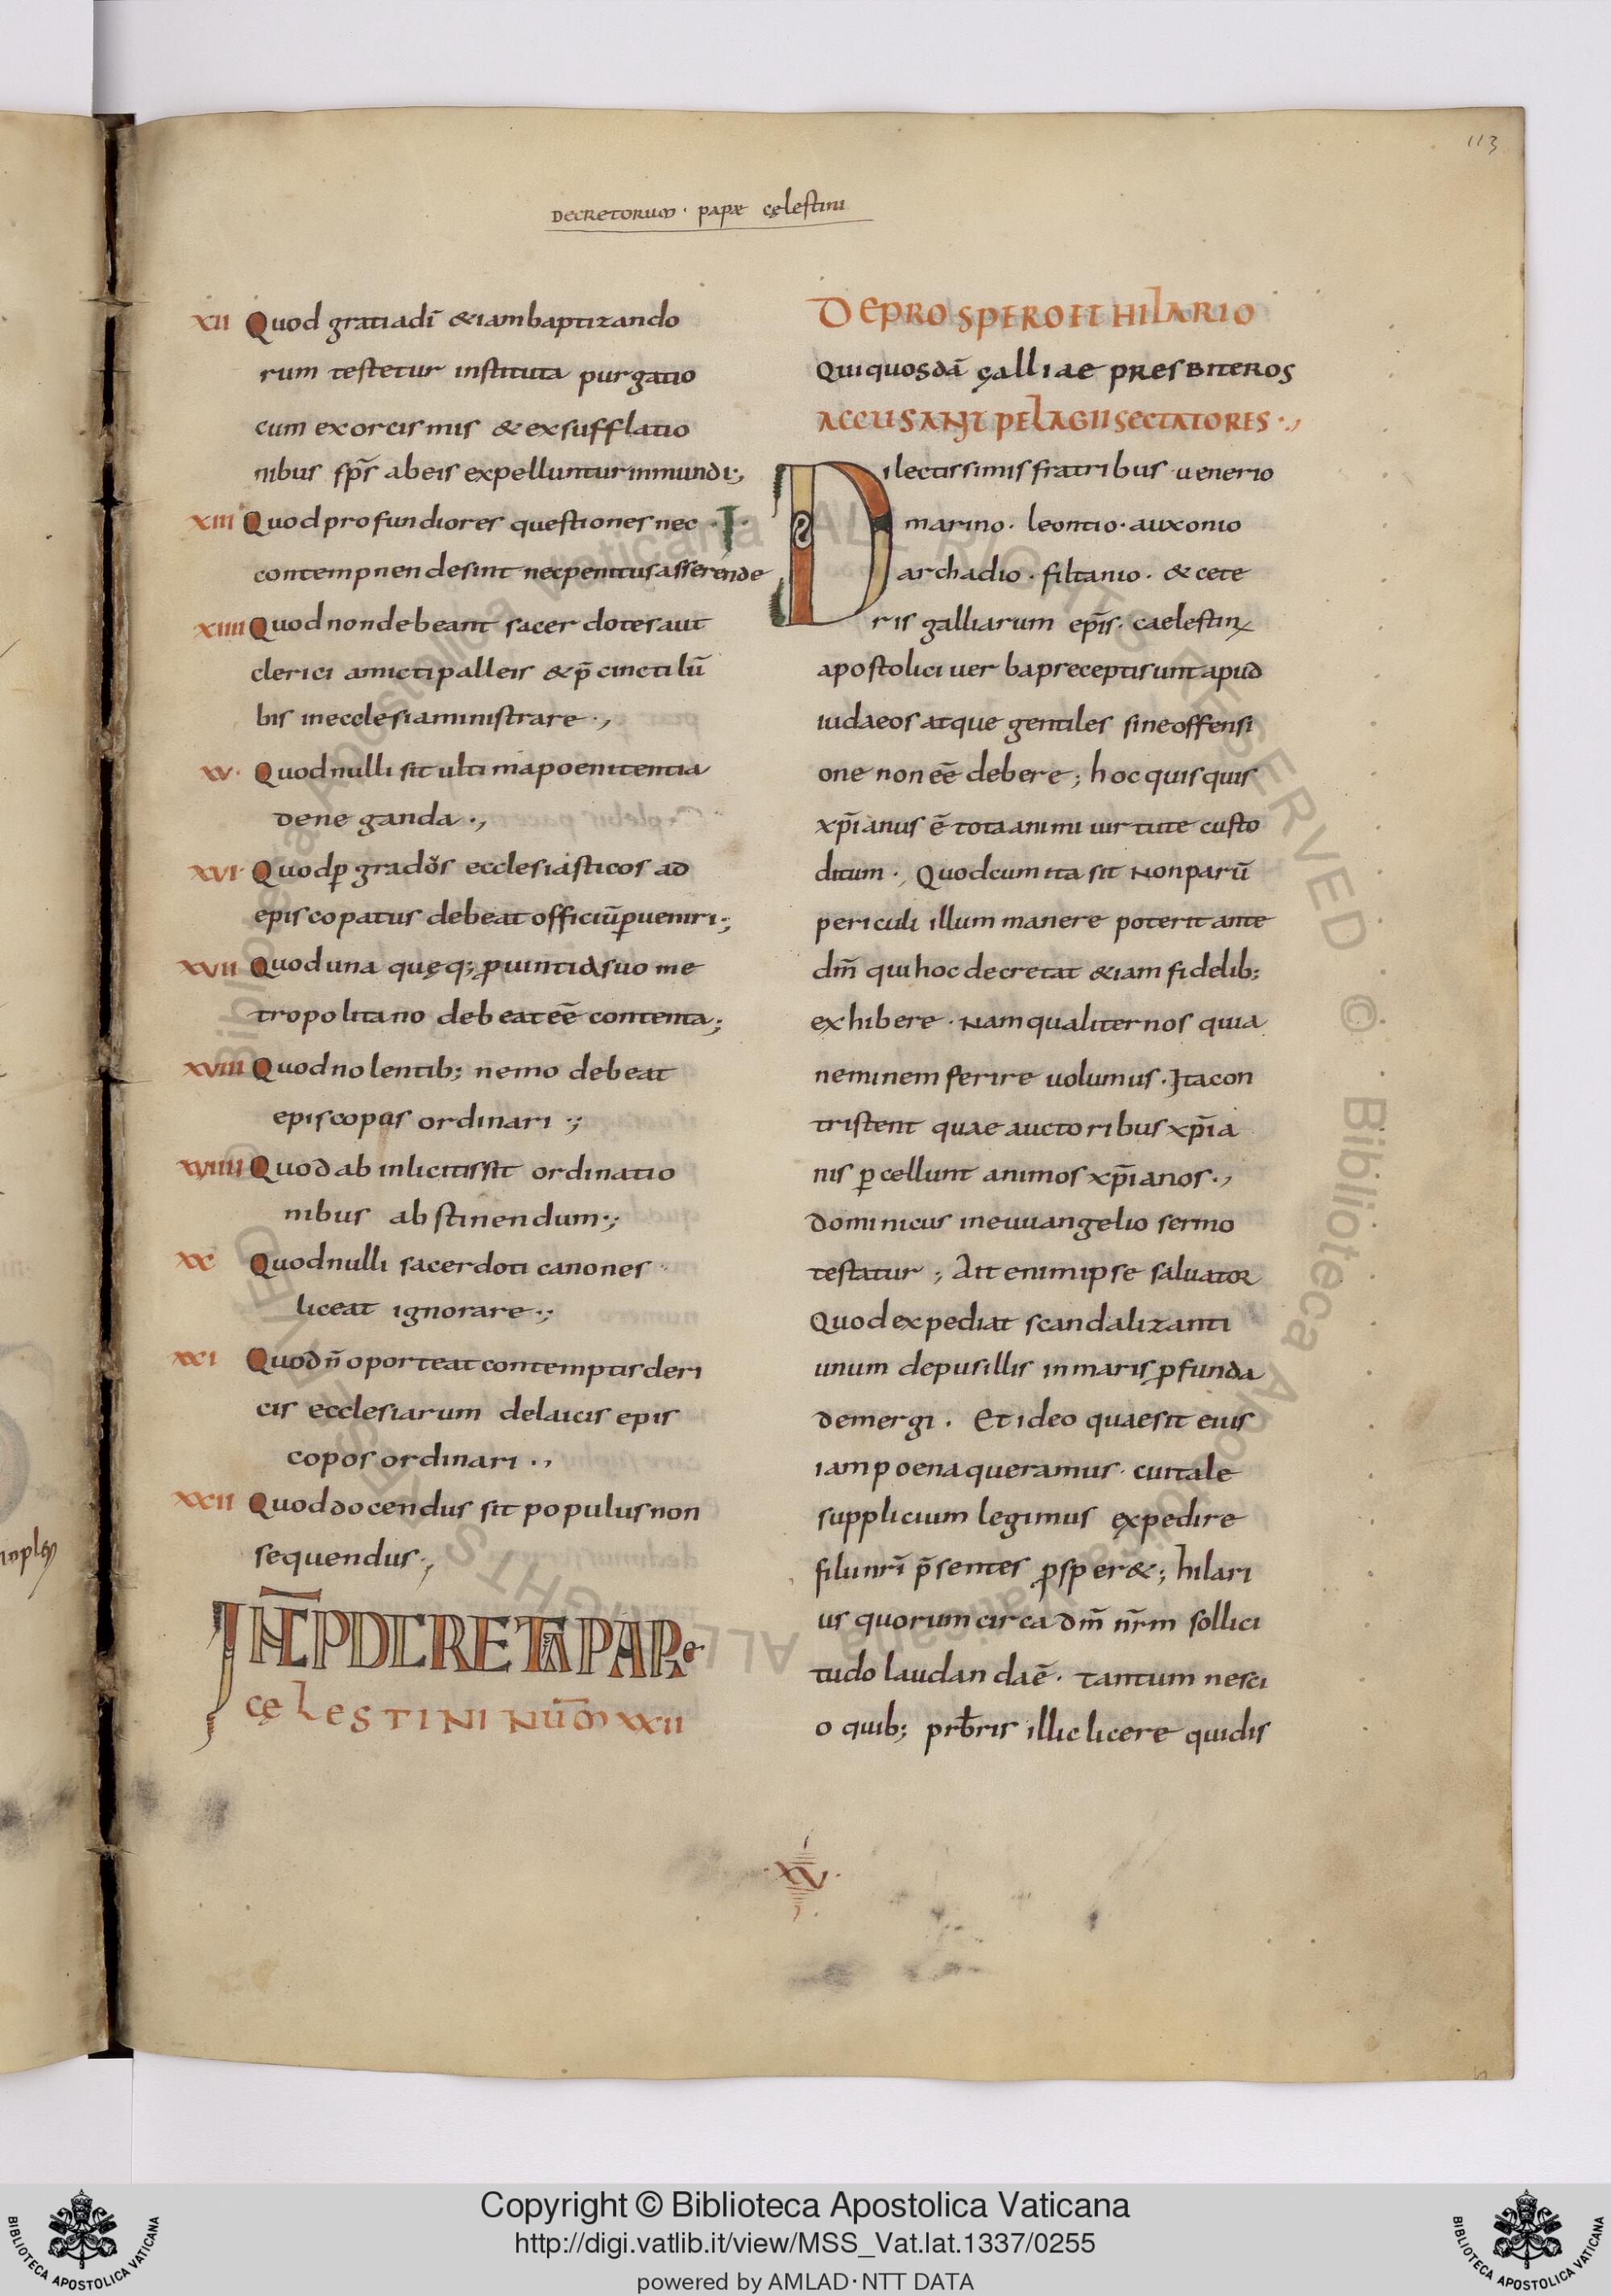 113
DECRETORUM · papae cęlestini
XII Quod gratia dī &iam baptizando
rum testetur instituta purgatio
cum exorcismis & exsufflatio
nibus sp̄s ab eis expelluntur inmundi;
XIII Quod profundiores questiones nec
contempnende sint nec penitus asserende
XIIII Quod non debeant sacerdotes aut
clerici amicti palleis & p̄cincti lū
bis in ecclesia ministrare.,
XV· Quod nulli sit ultima poenitentia
deneganda.,
XVI· Quod ꝑ gradus ecclesiasticos ad
episcopatus debeat officiū ꝑueniri;
XVII Quod una quęq; ꝓuintia suo me
tropolitano debeat eē contenta;
XVIII Quod nolentib; nemo debeat
episcopus ordinari .;
XVIIII Quod ab inlicitis sit ordinatio
nibus abstinendum.;
XX Quod nulli sacerdoti canones
liceat ignorare.;
XXI Quod n̄ oporteat contemptis cleri
cis ecclesiarum de laicis epis
copos ordinari .,
XXII Quod docendus sit populus non
sequendus.,
INCP DCRETA PAP·
CĘLESTINI NUM̄ XXII
DE PROSPERO ET HILARIO
Qui quosdā galliae PRESBITEROS
ACCUSANT PELAGII SECTATORES.,
I·
Dilectissimis fratribus uenerio
marino· leontio· auxonio
archadio· filtanio· & cete
ris galliarum ep̄is· caelestinꝰ
apostolici uerba precepti sunt apud
iudaeos atque gentiles sine offensi
one non eē debere; hoc quisquis
xp̄ianus ē tota animi uirtute custo
ditum., Quod cum ita sit Non parū
periculi illum manere poterit ante
dm̄ qui hoc decretat &iam fidelib;
exhibere· Nam qualiter nos quia
neminem ferire uolumus· Ita con
tristent quae auctoribus xp̄ia
nis ꝑcellunt animos xp̄ianos.,
dominicus in euuangelio sermo
testatur; Ait enim ipse saluator
Quod expediat scandalizanti
unum de pusillis in maris ꝓfunda
demergi. Et ideo quae sit eius
iam poena queramus· cui tale
supplicium legimus expedire
filii nr̄i p̄sentes ꝓsper &; hilari
us quorum circa dm̄ nr̄m sollici
tudo laudanda ē· tantum nesci
o quib; prb̄ris illic licere qui dis
·XV·
Copyright © Biblioteca Apostolica Vaticana
http://digi.vatlib.it/view/MSS_Vat.lat.1337/0255
powered by AMLAD·NTT DATA
BIBLIOTECA APOSTOLICA VATICANA
BIBLIOTECA APOSTOLICA VATICANA